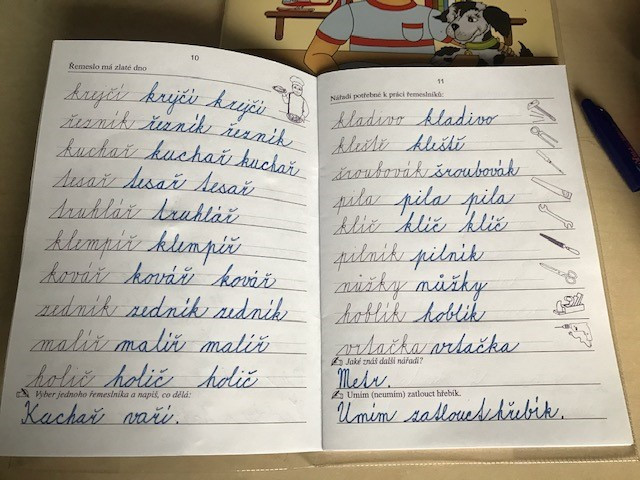 10
Řemeslo má zlaté dno
krejčí krejčí krejčí
řezník řezník řezník
kuchař kuchař kuchař
tesař tesař tesař
truhlář truhlář
klempíř klempíř
kovář kovář kovář
zedník zedník zedník
malíř malíř malíř
holič holič holič
Vyber jednoho řemeslníka a napiš, co dělá:
Kuchař vaří.
11
Nářadí potřebné k práci řemeslníků:
kladivo kladivo
kleště kleště
šroubovák šroubovák
pila pila pila
klíč klíč klíč
pilník pilník
nůžky nůžky
hoblík hoblík
vrtačka vrtačka
Jaké znáš další nářadí?
Metr.
Umím (neumím) zatlouct hřebík.
Umím zatlouct hřebík.